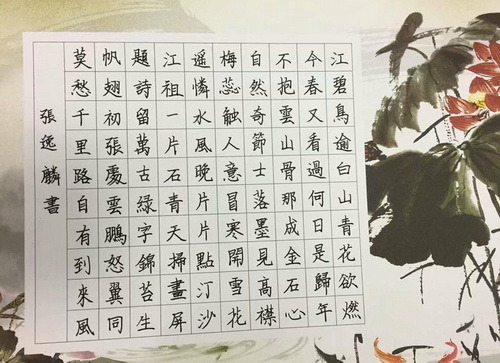 江碧鳥逾白山青花欲燃
今春又看過何日是歸年
不抱雲山骨那成金石心
自然奇節士落墨見高襟
梅蕊触人意冒寒開雪花
遥憐水風晚片片點汀沙
江祖一片石青天掃畫屏
題詩留萬古綠字錦苔生
帆翅初張處雲鵬怒翼同
莫愁千里路自有到來風
張逸麟書